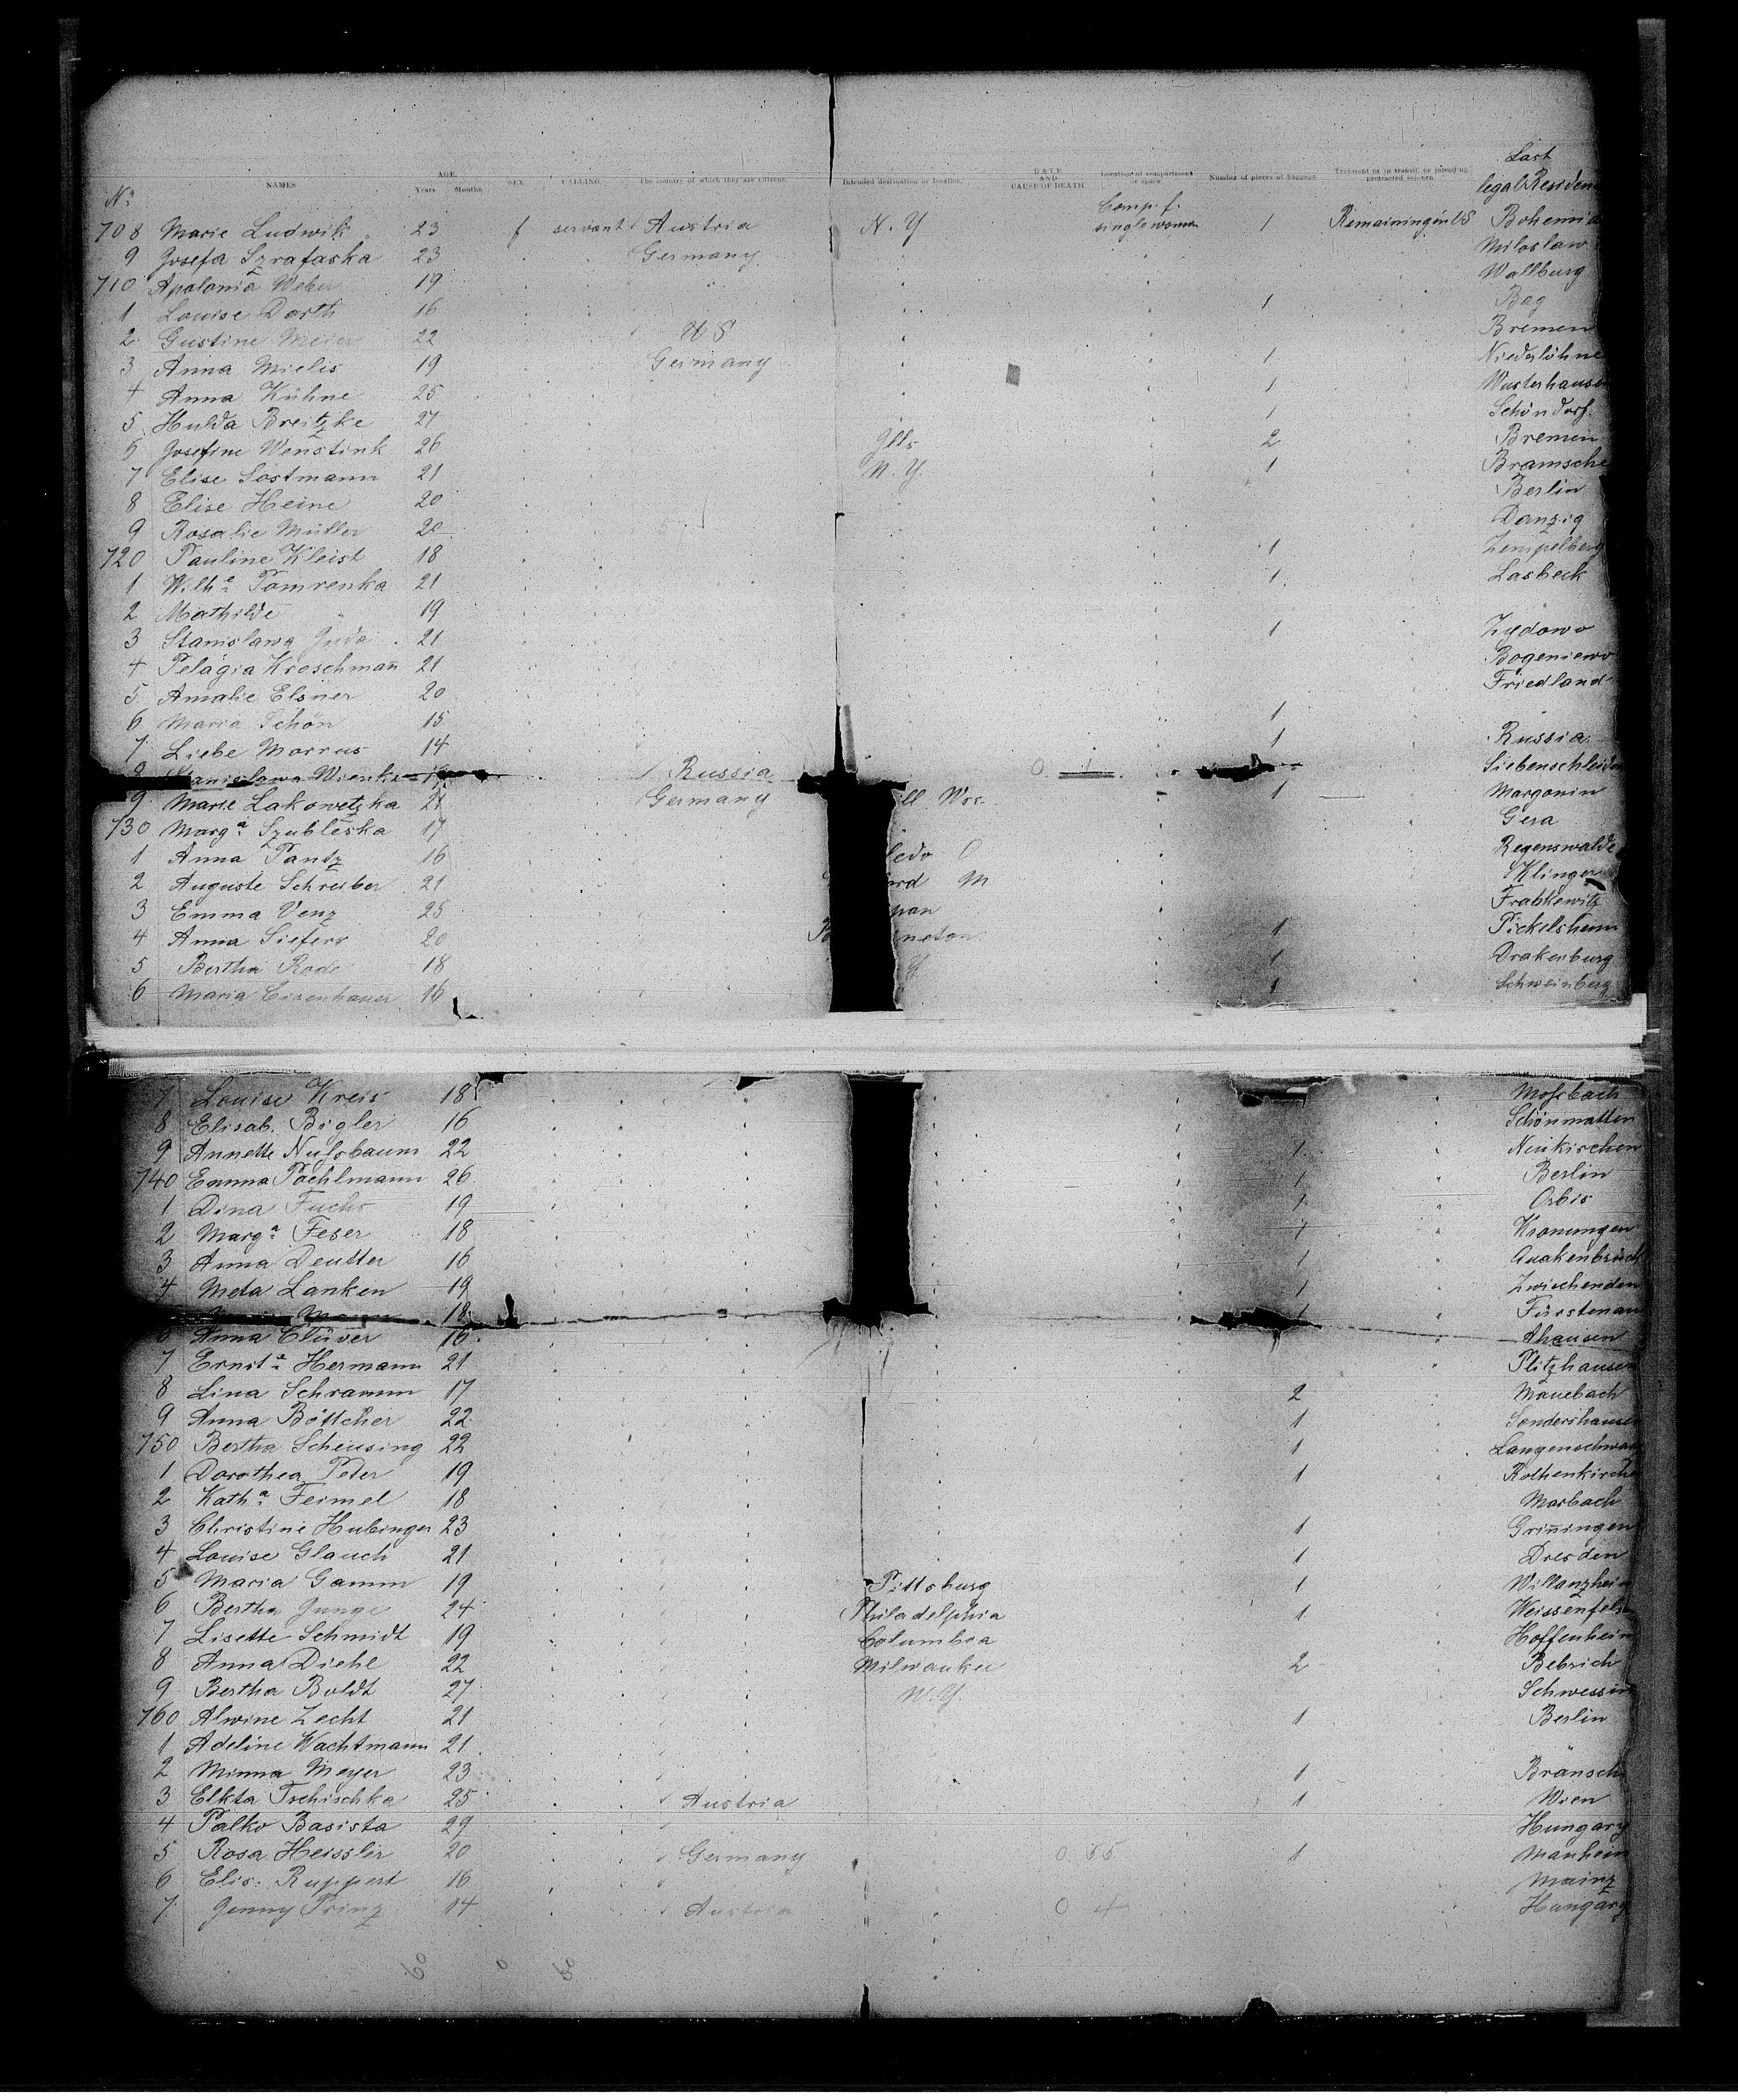 Last
AGE.
DATE
AND
CAUSE OF DEATH.
Nº NAMES. Years. Months. SEX. CALLING. The country of which they are citizens. Intended destination or location. Location of compartment or space. Number of pieces of baggage. Transient or in transit, or intending protracted sojourn. legal Residen
708 Marie Ludwik 23 f servant Austria N. Y Comp. f. single women 1 Remaining in US Bohemia
9 Josefa Szrafaska 23 Germany Miloslaw
710 Apolonia Weber 19 Wallburg
1 Louise Dorth 16 1 Bag
2 Gustine Meier 22 US Bremen
3 Anna Mielis 19 Germany 1 Niederlöhne
4 Anna Kühne 25 1 Wusterhausen
5 Hulda Breitzke 27 1 Schöndorf
6 Josefine Wenstink 26 Ills 2 Bremen
7 Elise Sostmann 21 N. Y. 1 Bramsche
8 Elise Heine 20 Berlin
9 Rosalie Müller 20 Danzig
720 Pauline Kleist 18 1 Zempelberg
1 Wilhe Pomrenka 21 1 Lasbeck
2 Mathilde " 19 "
3 Stanislawa Juda 21 1 Zydowo
4 Pelagia Kroschman̄ 21 Bogeniewo
5 Amalie Elsner 20 Friedland
6 Maria Schön 15 1
7 Liebe Morrus 14 1 Russia
8 Stanislawa Wienks 19 Russia 0 1 Siebenschleiden
9 Marie Lakowetzka 21 Germany ll Wis. 1 Margonin
730 Marga Szubleska 17 Gera
1 Anna Pantz 16 ledo O Regenswalde
2 Auguste Schreiber 21 ord M Klingen
3 Emma Venz 25 pan Frabkewitz
4 Anna Siefers 20 neton 1 Pickelsheim
5 Bertha Rode 18 Y 1 Drakenburg
6 Maria Eisenhauer 16 1 Schweinberg
7 Louise Kreis 18 Mosbach
8 Elisab. Bigler 16 Schönmatten
9 Annette Nußbaum 22 1 Neukirchen
740 Emma Poehlmann 26 1 Berlin
1 Dina Fuchs 19 1 Orbis
2 Marga Feser 18 1 Kronungen
3 Anna Deutter 16 1 Quakenbrück
4 Meta Lanken 19 1 Zwischenden
Mann 18 1 Fürstenau
6 Anna Clüver 16 Ahausen
7 Ernste Hermann 21 Plitzhausen
8 Lina Schramm 17 2 Mauebach
9 Anna Böttcher 22 1 Sondershausen
750 Bertha Scheusing 22 1 Langenschwar
1 Dorothea Peter 19 1 Rothenkirche
2 Katha Feimel 18 Marbach
3 Christine Hubinger 23 1 Grin̄ingen
4 Louise Glauch 21 1 Dresden
5 Maria Gamm 19 Pittsburg 1 Willanzheim
6 Bertha Junge 24 Philadelphia 1 Weissenfels
7 Lisette Schmidt 19 Columbia Hoffenheim
8 Anna Diehl 22 Milwaukee 2 Bebrich
9 Bertha Boldt 27 N. Y. Schwessin
760 Alwine Zecht 21 1 Berlin
1 Adeline Wachtmann 21 "
2 Minna Meyer 23 1 Bransch
3 Elkta Tschischka 25 Austria 1 Wien
4 Palko Basista 29 Hungary
5 Rosa Heissler 20 Germany 0 55 1 Manheim
6 Elis: Ruppert 16 Mainz
7 Jenny Prinz 14 Austria 0 4 Hungary
60 0 60